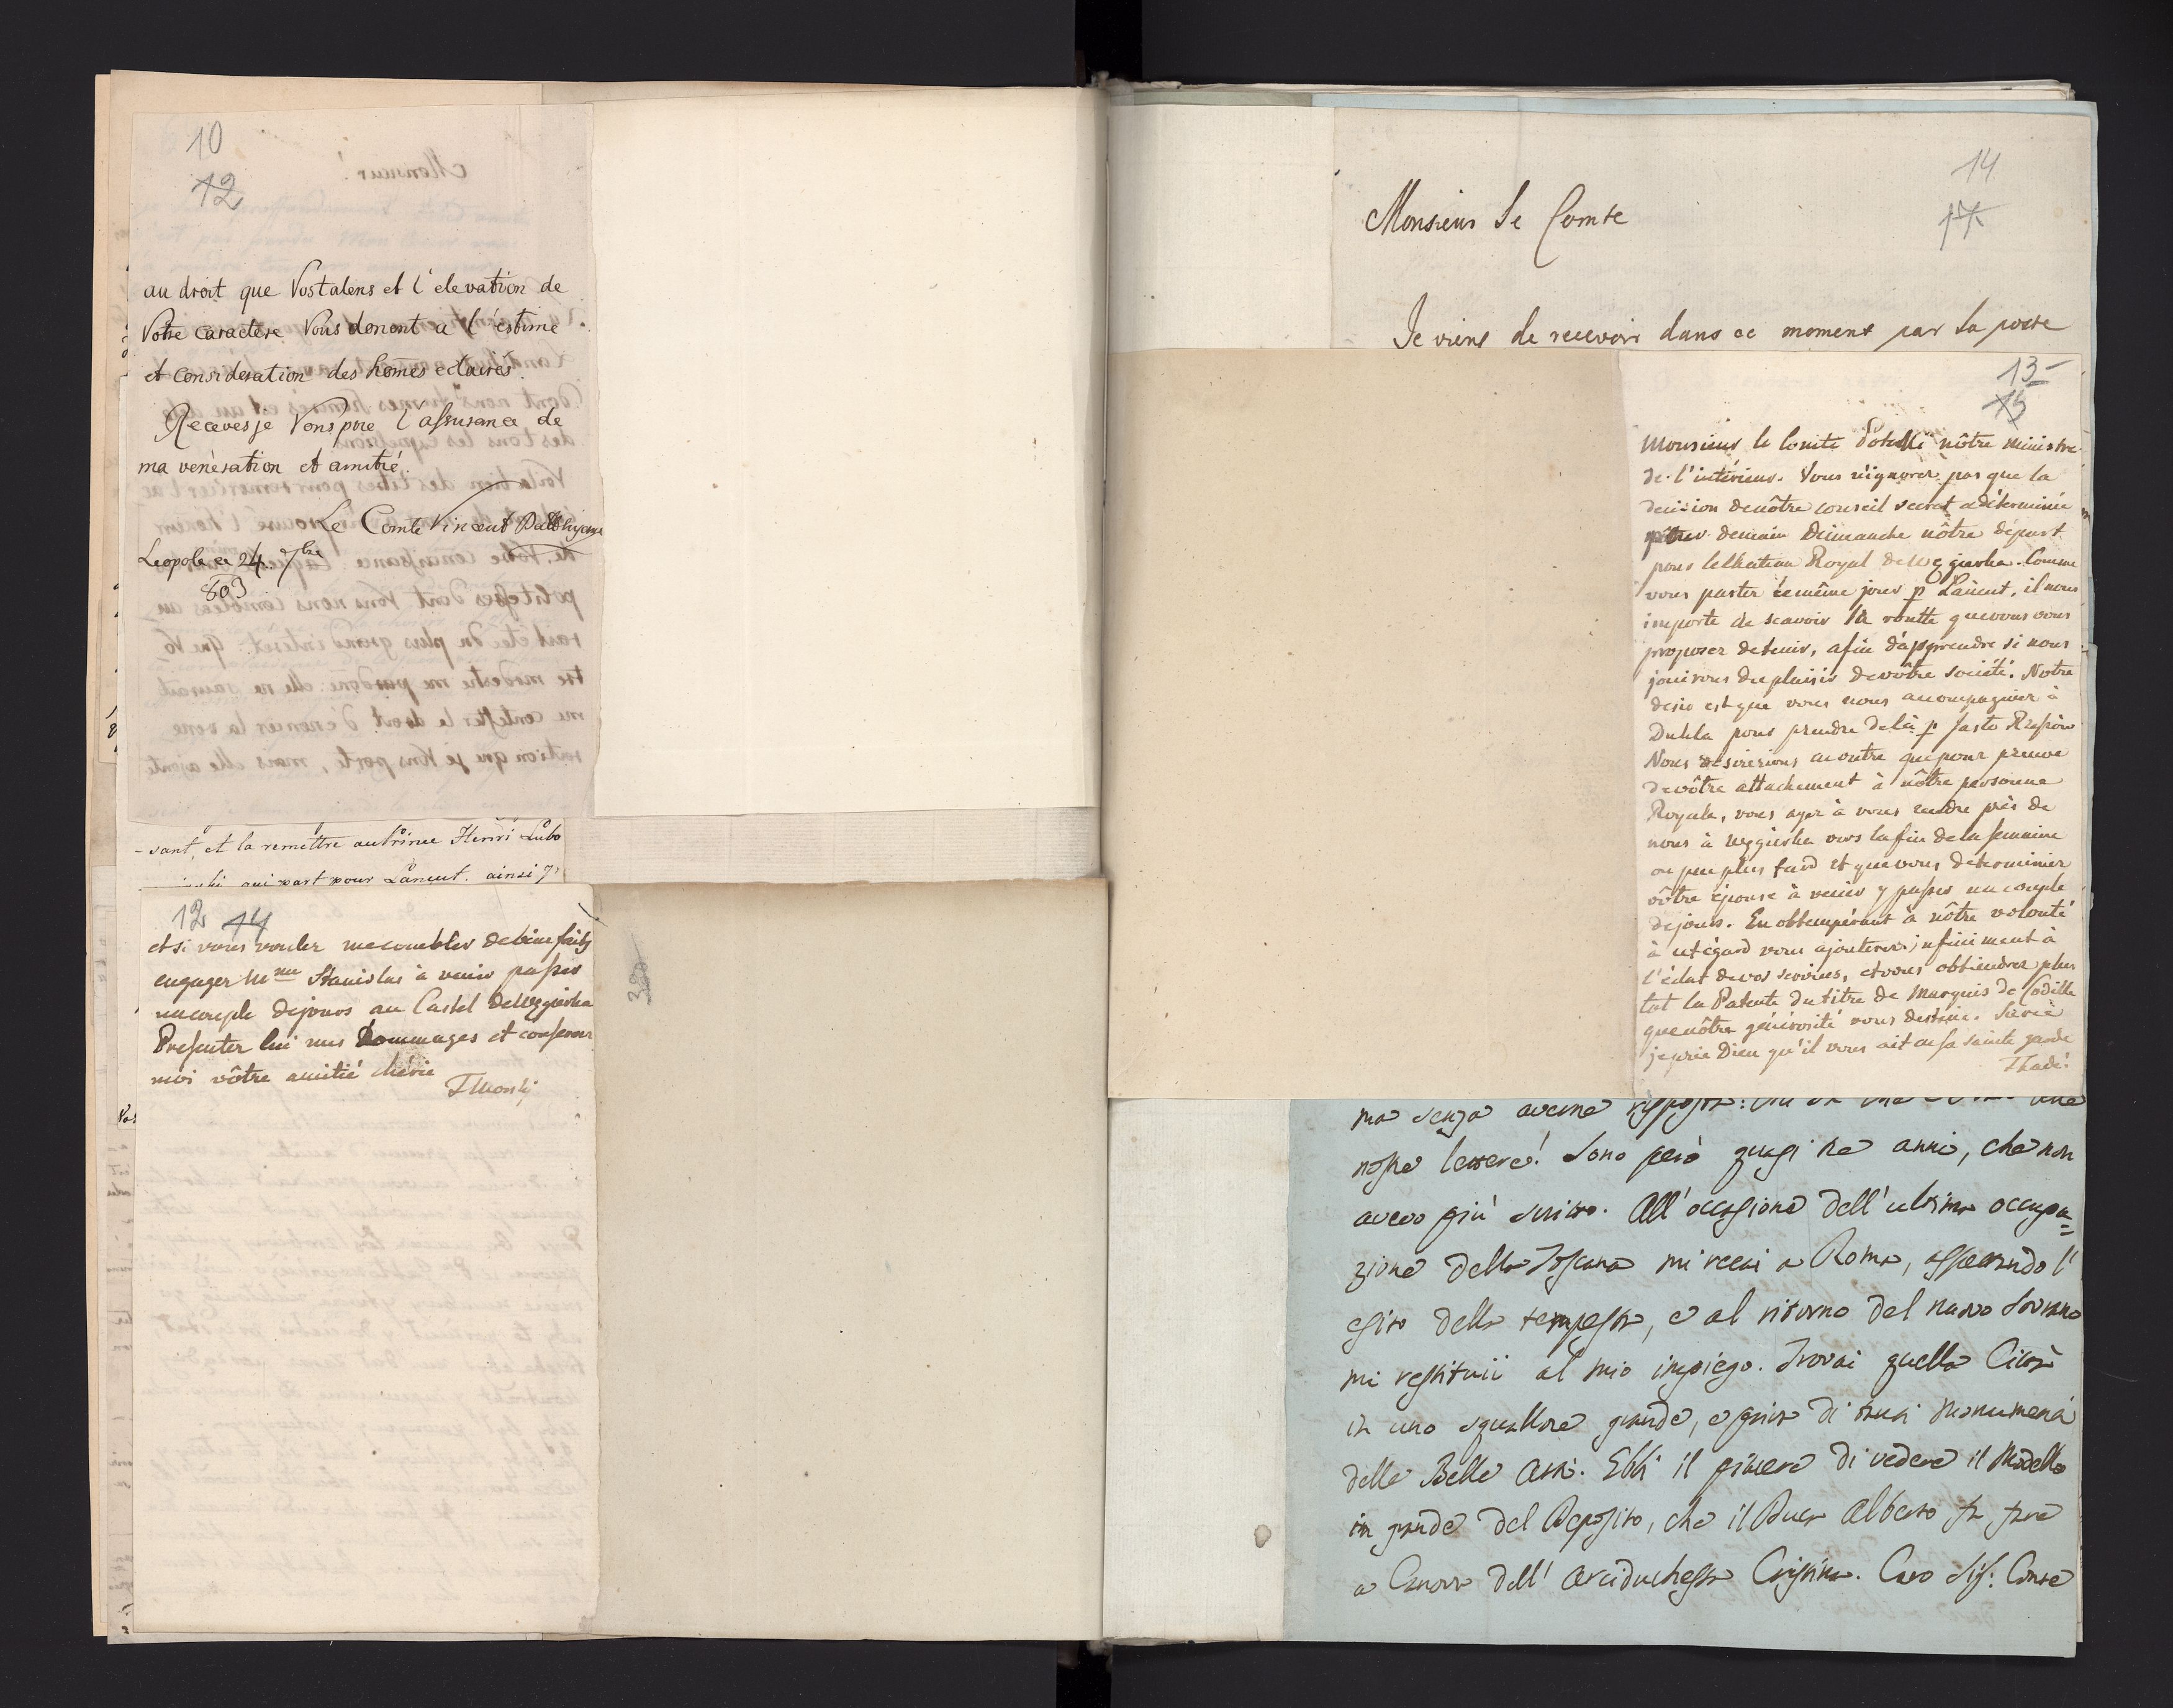 10
12
au droit que Vostalens et l'elevation de
Votre caractere Vous donent a l'estime
et consideration des homes eclairés.
Recevesje Vousprie l'assurance de
ma venèration et amitié.
Le Comte Vincent
Leopole ce 24. 7bre
803
-sant, et la remettre auPrince Henri Lubo
qui part pour Lancut. ainsi
12 14
etsi vous voulez mecombler debienfaits
engager Mme Stanislas à venir passer
uncouple dejours au Castel
Presenter lui mes hommages et conserver
moi vôtre amitié chérie
380
14
17
Monsieur Le Comte
Je viens de recevoir dans ce moment par la poste
13-
15
Monsieur le Comte nôtre ministre
de l'intérieur. Vous n'ignorez pas que la
decision denôtre conseil secret adéterminée
demain Dimanche nôtre départ
pour lechateau Royal de Comme
vous partez lemême jour pr Lancut, il nous
importe de scavoir la routte quevous vous
proposez detenir, afin d'apprendre si nous
jouirons duplaisir devôtre société. Notre
desir est que vous nous accompagniez à
Dukla pour prendre delà pr
Nous désirerions enoutre quepour preuve
devôtre attachement à nôtre personne
Royale, vous ayez à vous rendre près de
nous à vers lafin dela semaine
ou peu plus tard et quevous déterminiez
vôtre épouse à venir y passer un couple
dejours. En obtempérant à nôtre volonté
à cetégard vous ajouterez infiniment à
l'éclat devos services, etvous obtiendrez plus
tot la Patente du titre de Marquis de
quenôtre générosité vous destine. Surce
jeprie Dieu qu'il vous ait ensa sainte garde
Thadé
ma senza averne risposta:
nostre lettere! Sono però quasi tre anni, che non
avevo più scritto. All'occasione dell'ultima occupa=
zione della Toscana mi recai a Roma, aspettando l'
esito della tempesta, e al ritorno del nuovo Sovrano
mi restituii al mio impiego. Trovai quella Città
in uno squallore grande, e priva di tanti Monumenti
delle Belle Arti. Ebbi il piacere di vedere il Modello
in grande del Deposito, che il Duca Alberto fa fare
a Canova dell'Arciduchessa Cristina. Caro Sig: Conte